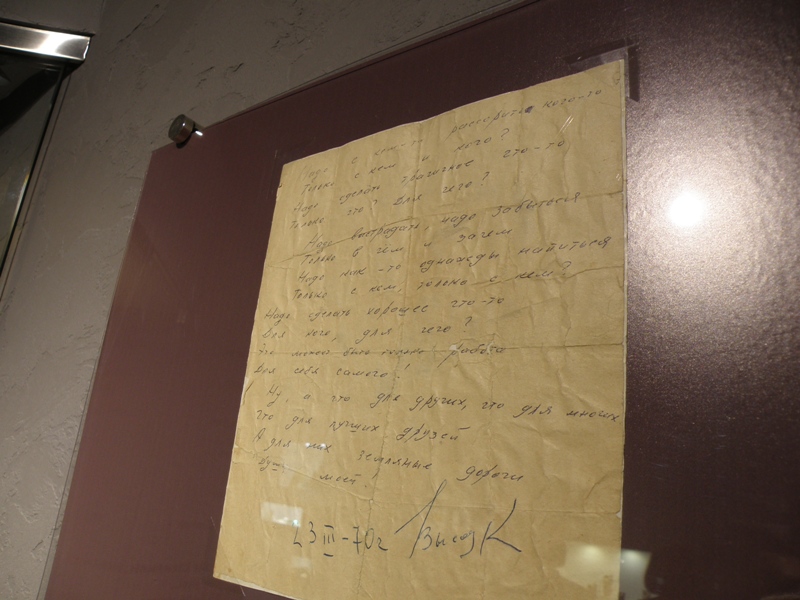 Надо с кем-то рассорить кого-то
Только с кем и кого?
Надо сделать трагичное что-то
Только что? Для чего?
Надо выстрадать, надо забыться
Только в чем и зачем
Надо как-то однажды напиться
Только с кем, только с кем?
Надо сделать хорошее что-то
Для кого, для чего?
Это может быть только работа
Для себя самого!
Ну, а что для других, что для многих
Что для лучших друзей
А для них земляные дороги
моей!
23 III-70г Высоц